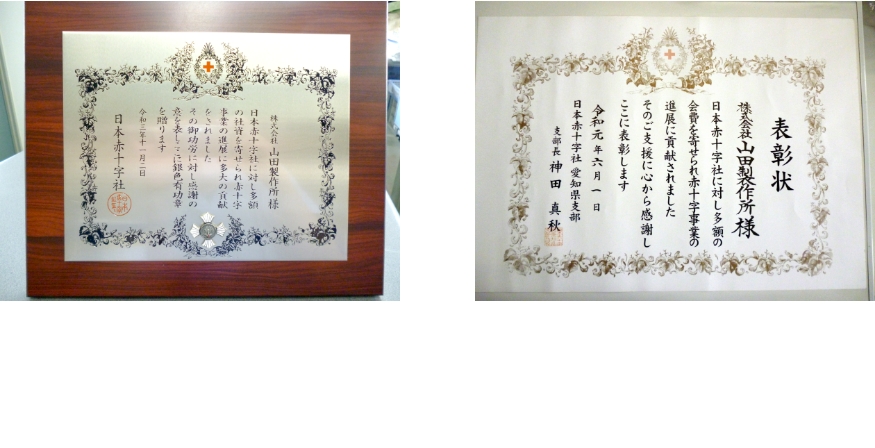 株式会社 山田製作所 様
日本赤十字社に対し多額
の社資を寄せられ赤十字
事業の進展に多大の貢献
をされました
その御功労に対し感謝の
意を表しここに銀色有功章
を贈ります
令和三年十一月二日
日本赤十字社
表彰状
株式会社山田製作所様
日本赤十字社に対し多額の
会費を寄せられ赤十字事業の
進展に貢献されました
そのご支援に心から感謝し
ここに表彰します
令和元年六月一日
日本赤十字社 愛知県支部
支部長 神田真秋